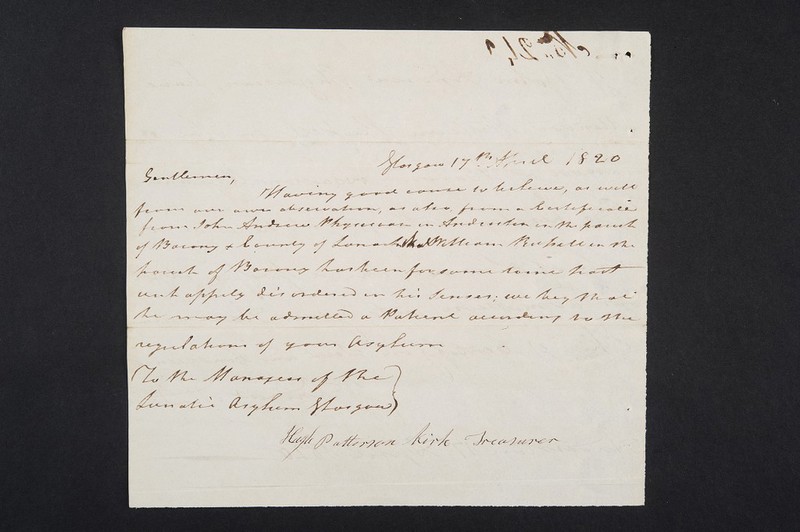 Glasgow 17th April 1820
Gentlemen,
Having good cause to believe, as well
from our own observation, as also from a Certificate
from John Andrew Physician in Anderston in the parish
of Barony & County of Lanark that William Russell in the
parish of Barony has been for some time past
unhappily disordered in his Senses; we beg that
he may be admitted a Patient according to the
regulations of your Asylum
To the Managers of the
Lunatic Asylum Glasgow
Hugh Patterson Kirk Treasurer